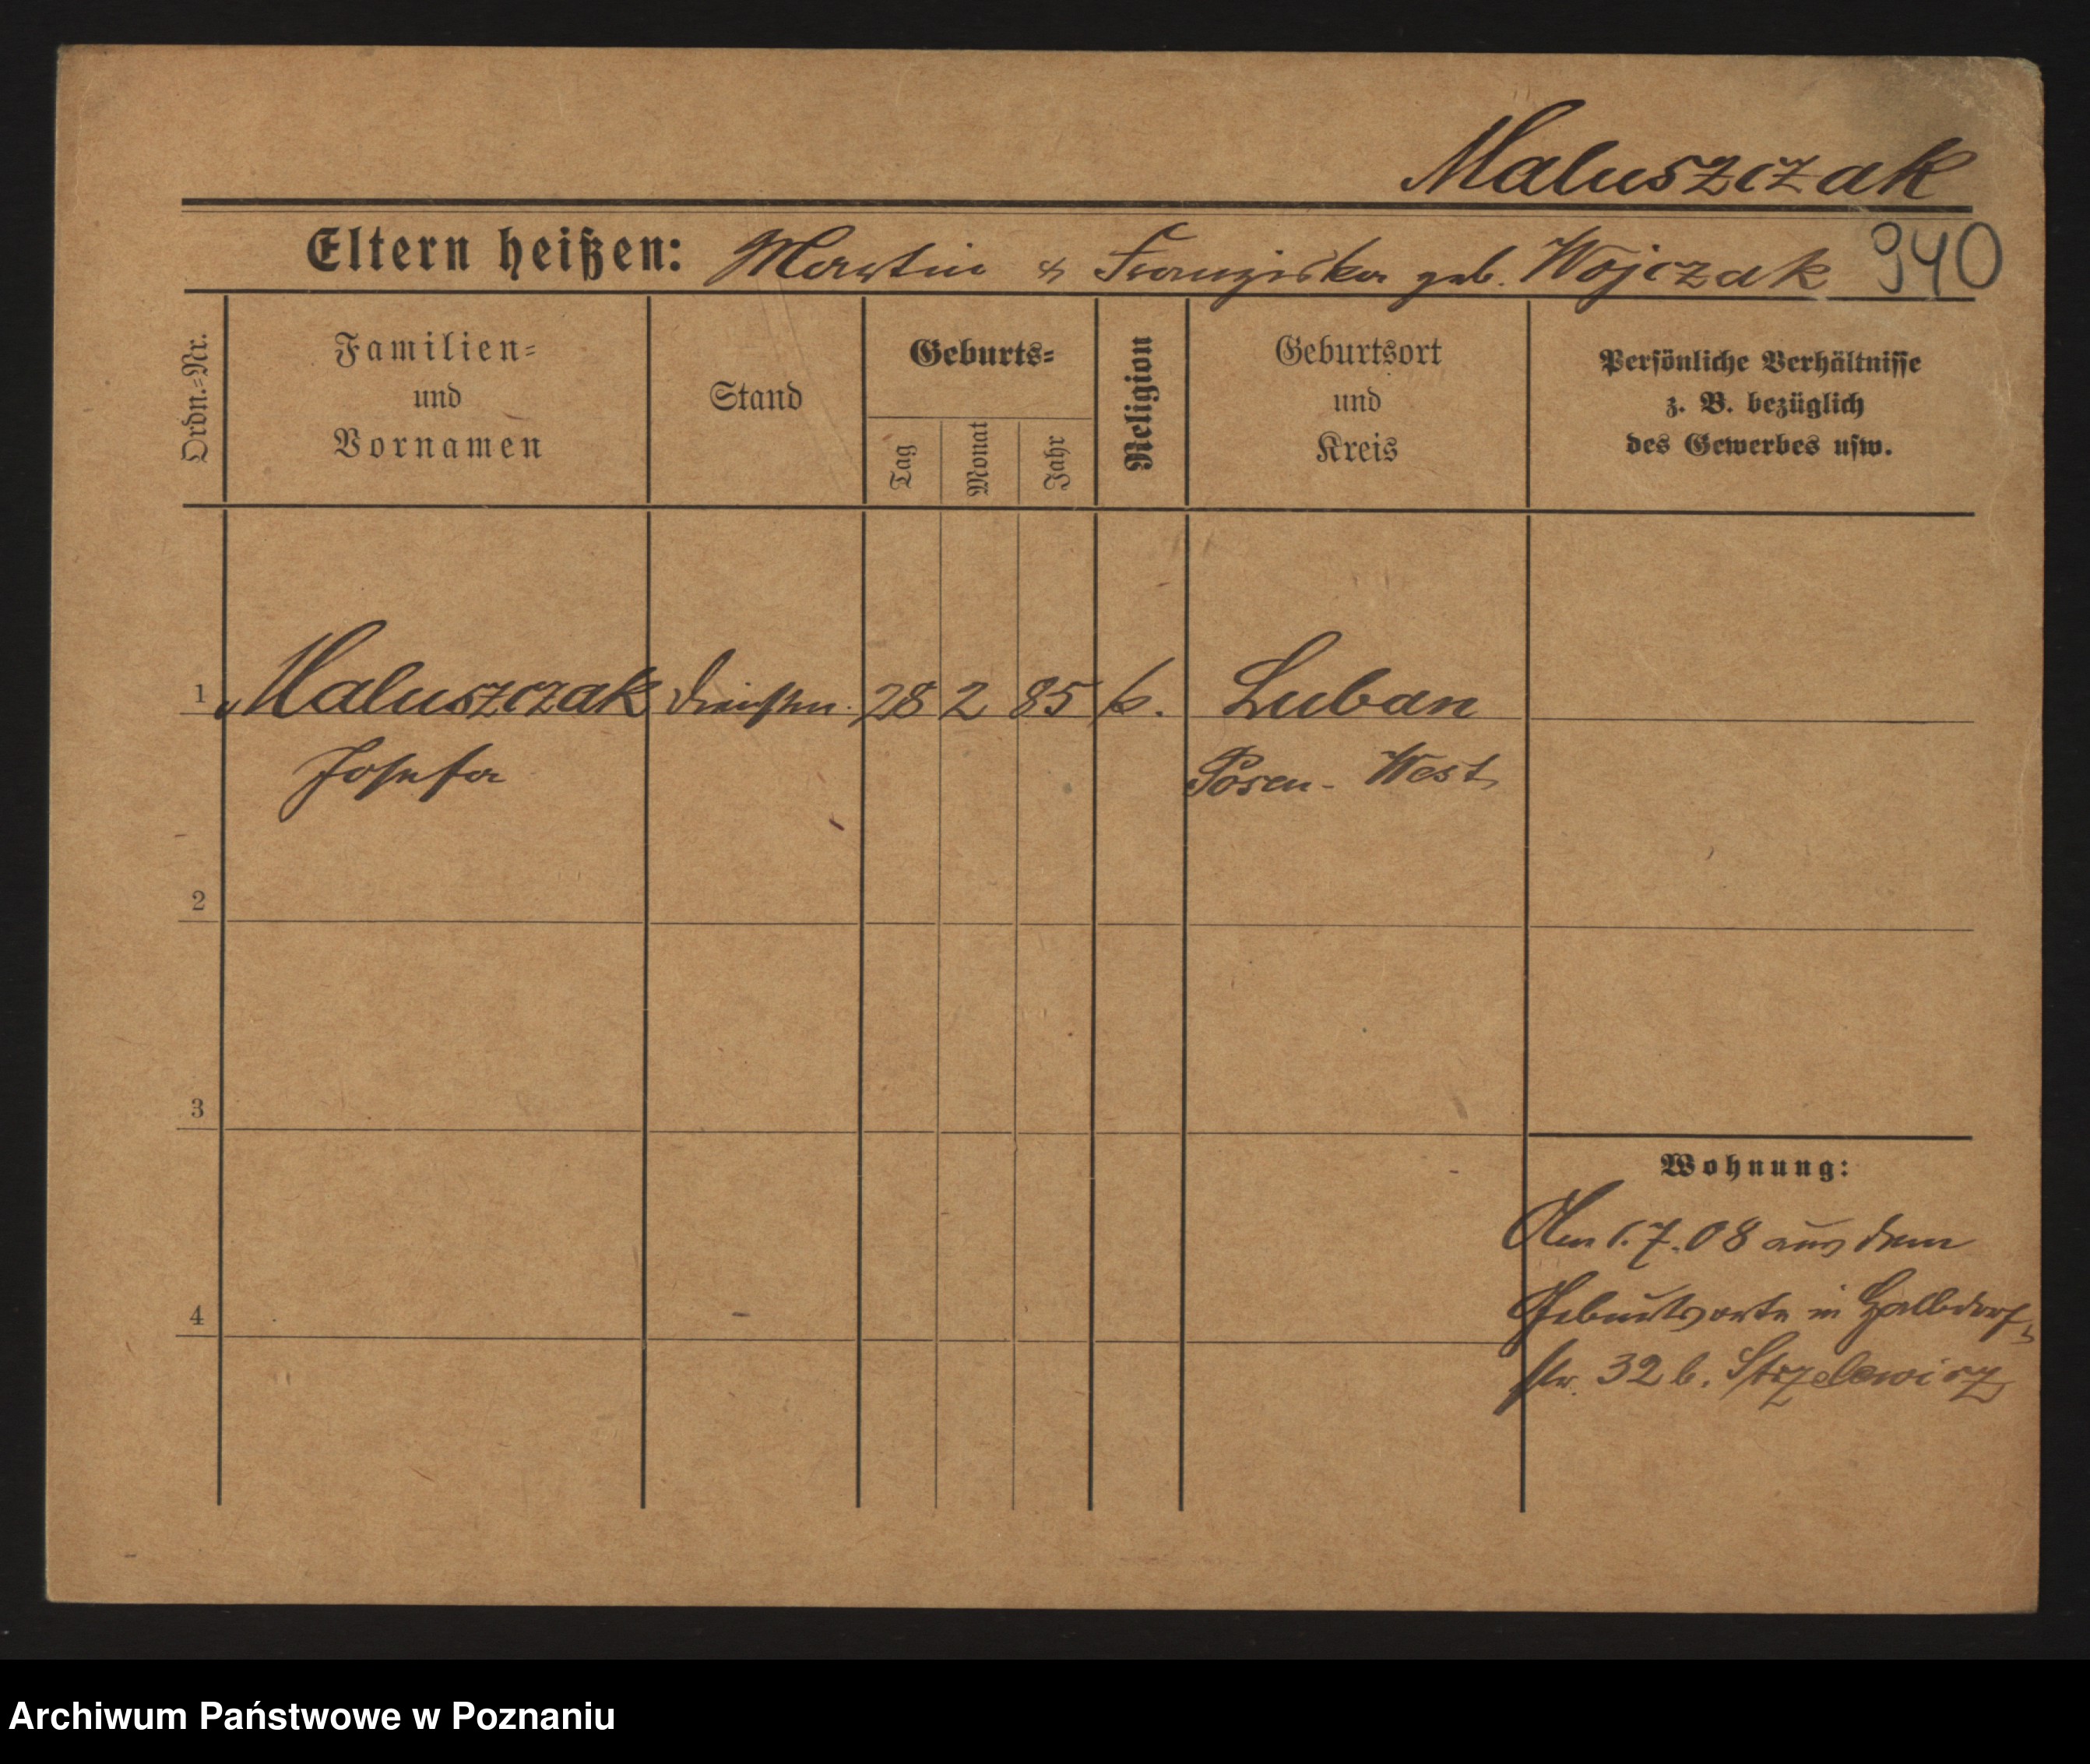 Maluszczak
Eltern heißen: Martin & Franziska geb. Wojczak 940
Ordn.=Nr.
Familien=
und
Vornamen
Stand
Geburts=
Tag
Monat
Jahr
Religion
Geburtsort
und
Kreis
Persönliche Verhältnisse
z. B. bezüglich
des Gewerbes usw.
1 Maluszczak 28 2 85 k. Luban
Josefa Posen - West
2
3
Wohnung:
Am 1.7.08 aus dem
4
Geburtsorte in Halbdorf-
str. 32 b. Strzelewicz
Archiwum Państwowe w Poznaniu